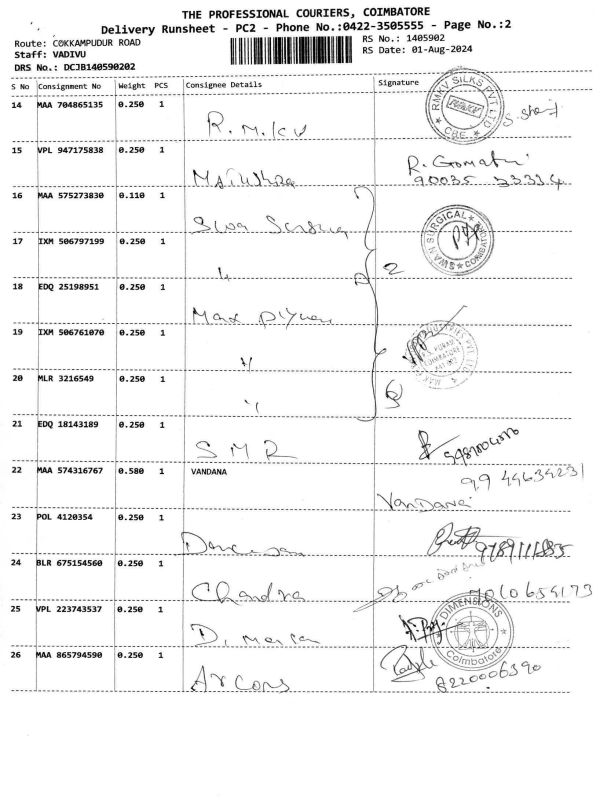 THE PROFESSIONAL COURIERS, COIMBATORE
Delivery Runsheet - PC2 - Phone No.:0422-3505555 - Page No.:2
Route: COKKAMPUDUR ROAD
RS No.: 1405902
Staff: VADIVU
RS Date: 01-Aug-2024
DRS No.: DCJB140590202
S No Consignment No Weight PCS Consignee Details Signature
14 MAA 704865135 0.250 1 R.M.K.V
RMKV SILKS PVT LTD CBE.
15 VPL 947175838 0.250 1 R. Gomathi
90035 33334
16 MAA 575273830 0.110 1 Siva
SWAN SURGICAL COIMBATORE
17 IXM 506797199 0.250 1 "
2
18 EDQ 25198951 0.250 1
19 IXM 506761070 0.250 1 "
20 MLR 3216549 0.250 1 "
21 EDQ 18143189 0.250 1 S M R
22 MAA 574316767 0.580 1 VANDANA
VanDana
23 POL 4120354 0.250 1
24 BLR 675154560 0.250 1 Chandra
25 VPL 223743537 0.250 1
DIMENSIONS Coimbatore
26 MAA 865794590 0.250 1 Arcons
8220006390